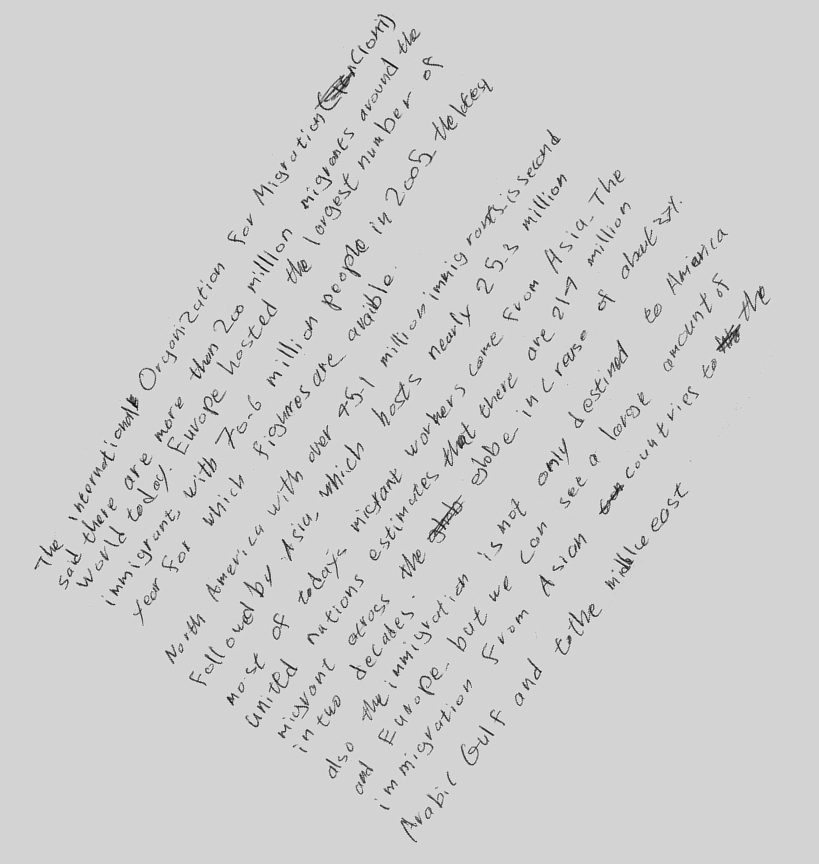 The international Organization for Migration (iom)
said there are more than 200 million migrants around the
world today. Europe hosted the largest number of
immigrant, with 70.6 million people in 2005, the latest
year for which figures are avaible.
North America with over 45.1 million immigrants is second
followed by Asia, which hosts nearly 25.3 million
most of todays migrant workers come from Asia. The
united nations estimates that there are 214 million
migrant across the globe increase of about 37%.
in two decades.
also the immigration is not only destined to America
and Europe. but we can see a large amount of
immigration from Asian countries to the
Arabic Gulf and to the middle east